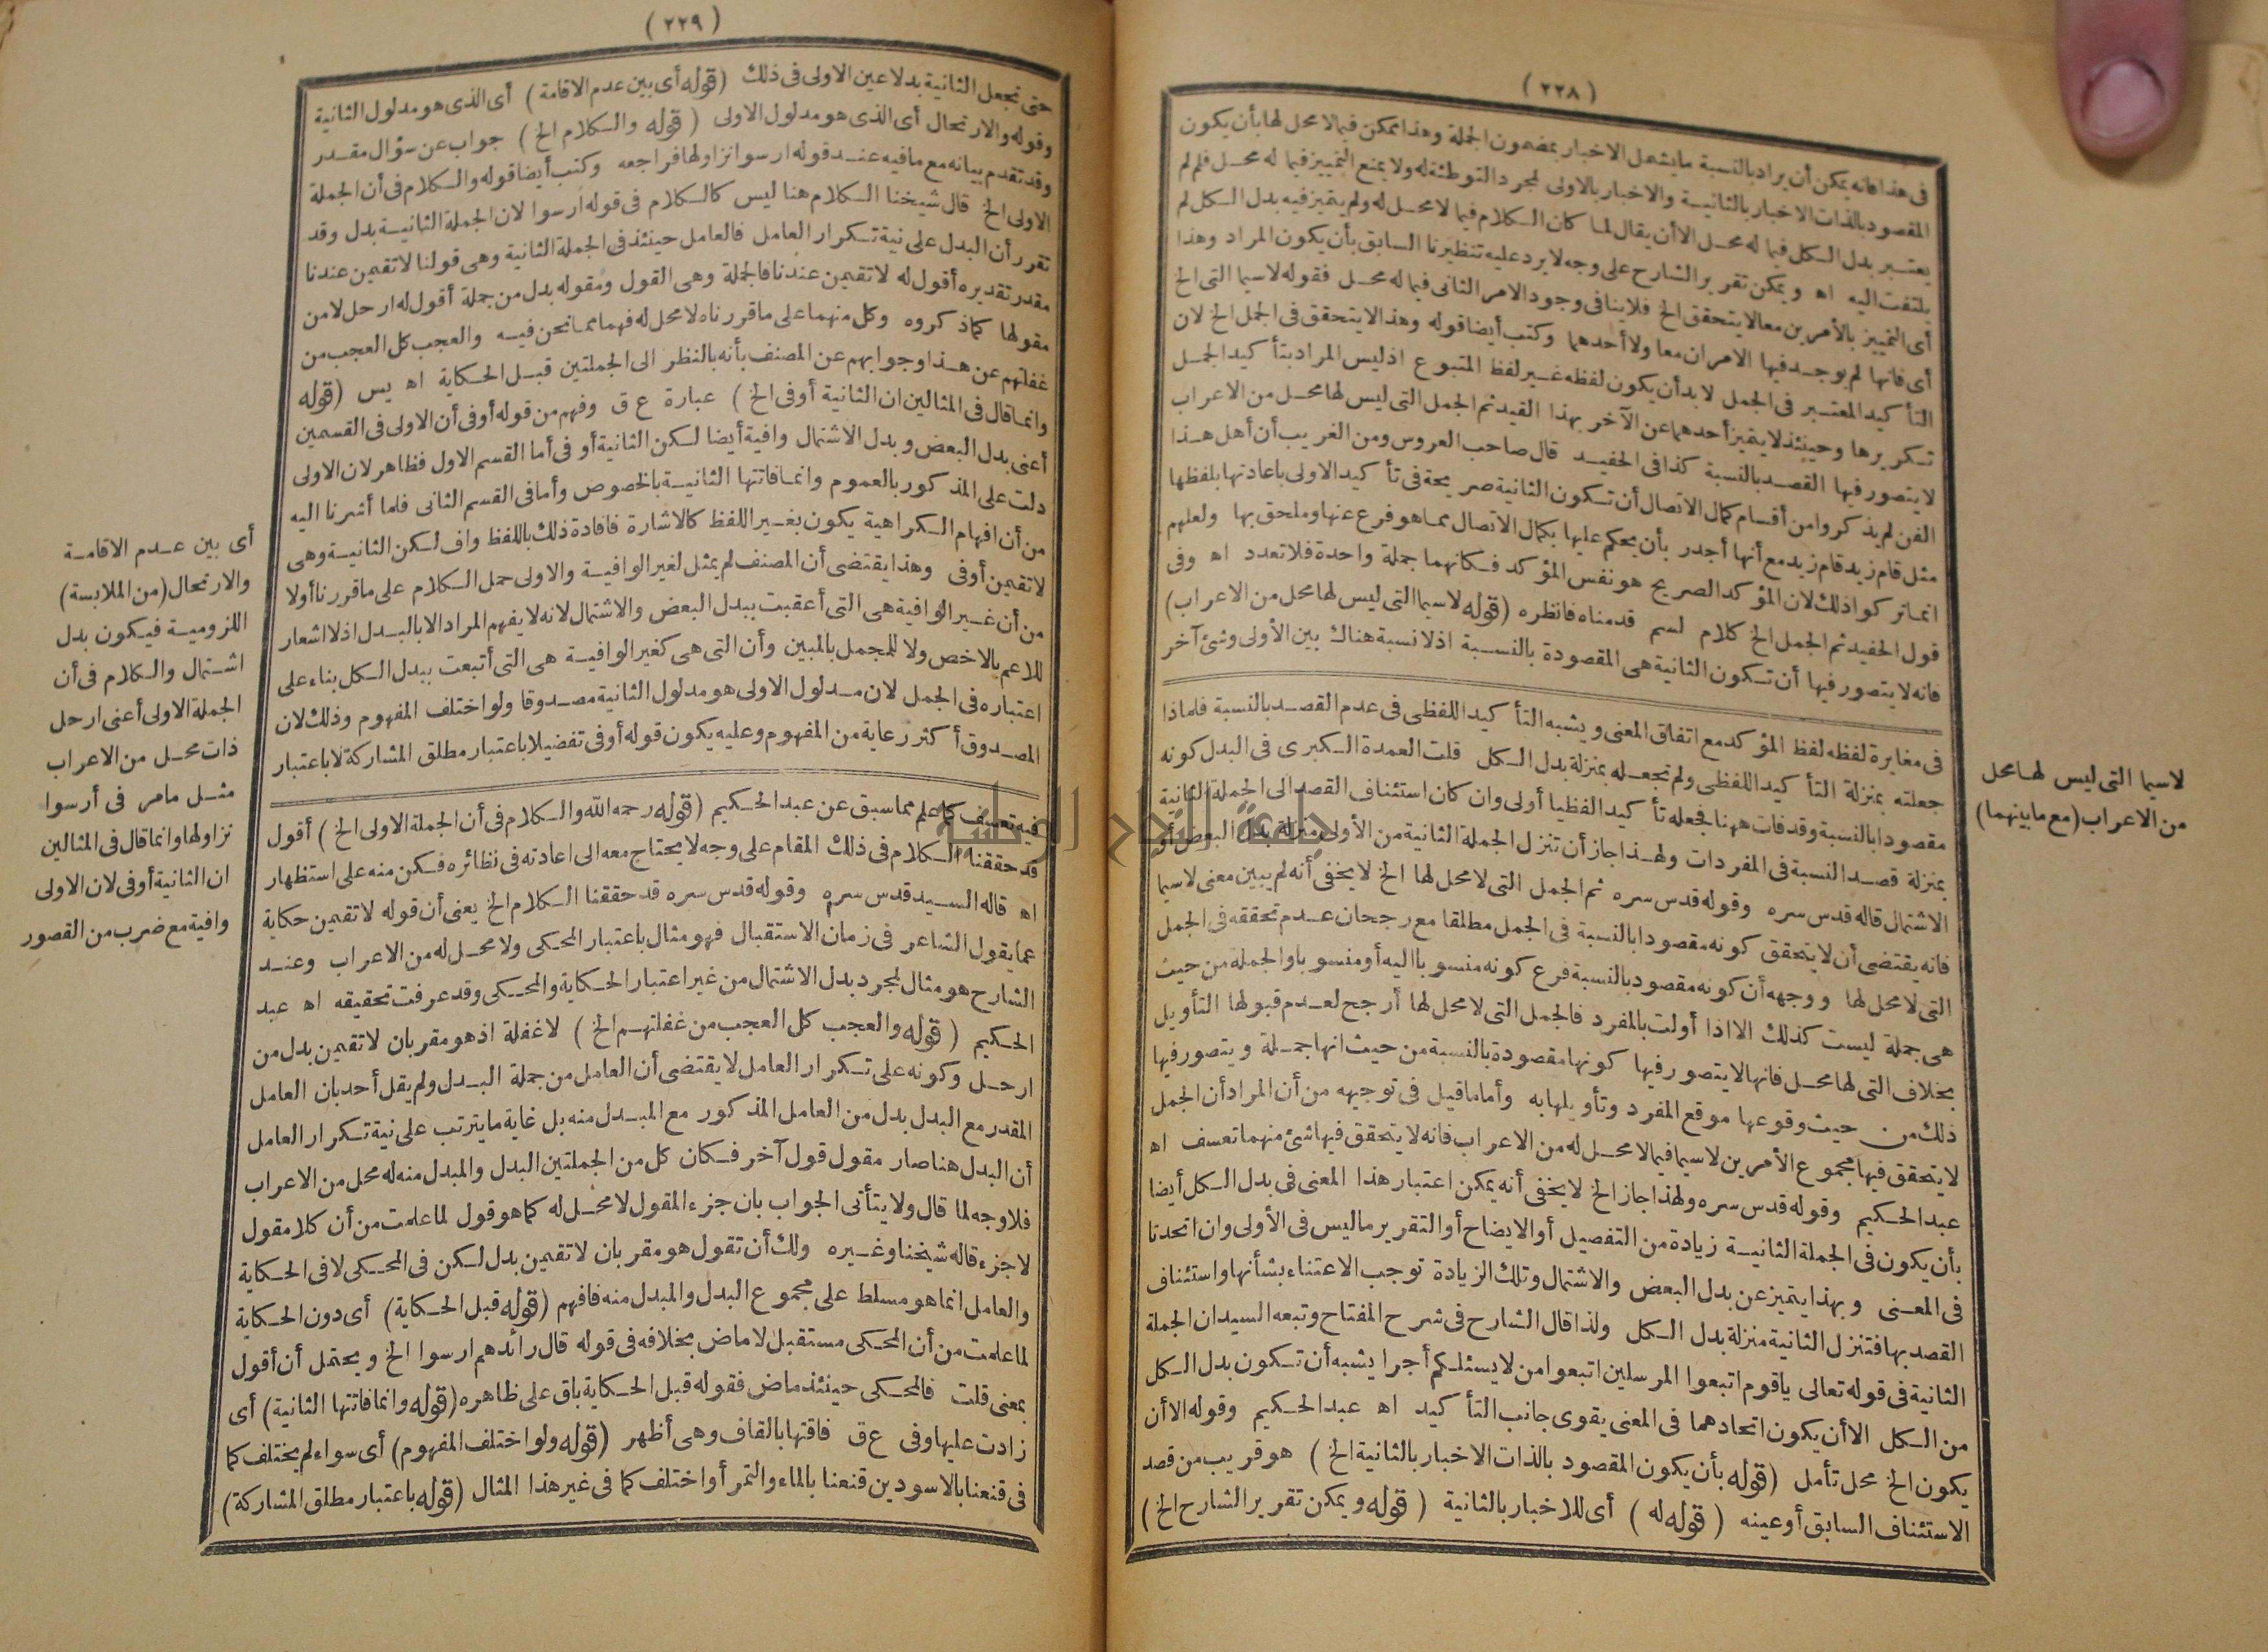 (٢٢٨)
فى هذا فانه يمكن أن يراد بالنسبة ما يشمل الاخبار بمضمون الجملة وهذا ممكن فيما لا محل لها بأن يكون
المقصود بالذات الاخبار بالثانية والاخبار بالاولى لمجرد التوطئة له ولا يمنع التمييز فيما له محل فلم لم
يعتبر بدل الكل فيما له محل الا أن يقال لما كان الكلام فيما لا محل له ولم يتميز فيه بدل الكل لم
يلتفت اليه اه ويمكن تقرير الشارح على وجه لا يرد عليه تنظيرنا السابق بأن يكون المراد وهذا
أى التمييز بالأمرين معا لا يتحقق الخ فلا ينافى وجود الامر الثانى فيما له محل فقوله لاسيما التى الخ
أى فانها لم يوجد فيها الامران معا ولا أحدهما وكتب أيضا قوله وهذا لا يتحقق فى الجمل الخ لان
التأكيد المعتبر فى الجمل لا بد أن يكون لفظه غير لفظ المتبوع اذ ليس المراد بتأكيد الجمل
تكريرها وحينئذ لا يتميز أحدهما عن الآخر بهذا القيد ثم الجمل التى ليس لها محل من الاعراب
لا يتصور فيها القصد بالنسبة كذا فى الحفيد قال صاحب العروس ومن الغريب أن أهل هذا
الفن لم يذكروا من أقسام كمال الاتصال أن تكون الثانية صريحة فى تأكيد الاولى باعادتها بلفظها
مثل قام زيد قام زيد مع أنها أجدر بأن يحكم عليها بكمال الاتصال مما هو فرع عنها وملحق بها ولعلهم
انما تركوا ذلك لان المؤكد الصريح هو نفس المؤكد فكانهما جملة واحدة فلا تعدد اه وفى
قول الحفيد ثم الجمل الخ كلام لسم قدمناه فانظره (قوله لاسيما التى ليس لها محل من الاعراب)
فانه لا يتصور فيها أن تكون الثانية هى المقصودة بالنسبة اذ لا نسبة هناك بين الأولى وشئ آخر
فى مغايرة لفظه لفظ المؤكد مع اتفاق المعنى ويشبه التأكيد اللفظى فى عدم القصد بالنسبة فلماذا
جعلته بمنزلة التأكيد اللفظى ولم تجعله بمنزلة بدل الكل قلت العمدة الكبرى فى البدل كونه
مقصودا بالنسبة وقد فات ههنا فجعله تأكيدا لفظيا أولى وان كان استئناف القصد الى الجملة الثانية
بمنزلة قصد النسبة فى المفردات ولهذا جاز أن تنزل الجملة الثانية من الأولى منزلة بدل البعض أو
الاشتمال قاله قدس سره وقوله قدس سره ثم الجمل التى لا محل لها الخ لا يخفى أنه لم يبين معنى لاسيما
فانه يقتضى أن لا يتحقق كونه مقصودا بالنسبة فى الجمل مطلقا مع رجحان عدم تحققه فى الجمل
التى لا محل لها ووجهه أن كونه مقصود بالنسبة فرع كونه منسوبا اليه أو منسوبا والجملة من حيث
هى جملة ليست كذلك الا اذا أولت بالمفرد فالجمل التى لا محل لها أرجح لعدم قبولها التأويل
بخلاف التى لها محل فانها لا يتصور فيها كونها مقصودة بالنسبة من حيث انها جملة ويتصور فيها
ذلك من حيث وقوعها موقع المفرد وتأويلها به وأما ما قيل فى توجيهه من أن المراد أن الجمل
لا يتحقق فيها مجموع الأمرين لاسيما فيما لا محل له من الاعراب فانه لا يتحقق فيها شئ منهما تعسف اه
عبد الحكيم وقوله قدس سره ولهذا جاز الخ لا يخفى أنه يمكن اعتبار هذا المعنى فى بدل الكل أيضا
بأن يكون فى الجملة الثانية زيادة من التفصيل أو الايضاح أو التقرير ما ليس فى الأولى وان اتحدتا
فى المعنى وبهذا يتميز عن بدل البعض والاشتمال وتلك الزيادة توجب الاعتناء بشأنها واستئناف
القصد بها فتنزل الثانية منزلة بدل الكل ولذا قال الشارح فى شرح المفتاح وتبعه السيد ان الجملة
الثانية فى قوله تعالى ياقوم اتبعوا المرسلين اتبعوا من لا يسئلكم أجرا يشبه أن تكون بدل الكل
من الكل الا أن يكون اتحادهما فى المعنى يقوى جانب التأكيد اه عبد الحكيم وقوله الا أن
يكون الخ محل تأمل (قوله بأن يكون المقصود بالذات الاخبار بالثانية الخ) هو قريب من قصد
الاستئناف السابق أو عينه (قوله له) أى للاخبار بالثانية (قوله ويمكن تقرير الشارح الخ)
لاسيما التى ليس لها محل
من الاعراب (مع ما بينهما)
(٢٢٩)
حتى تجعل الثانية بدلا عين الاولى فى ذلك (قوله أى بين عدم الاقامة) أى الذى هو مدلول الثانية
وقوله والارتحال أى الذى هو مدلول الاولى (قوله والكلام الخ) جواب عن سؤال مقدر
وقد تقدم بيانه مع ما فيه عند قوله ارسوا نزاولها فراجعه وكتب أيضا قوله والكلام فى أن الجملة
الاولى الخ قال شيخنا الكلام هنا ليس كالكلام فى قوله أرسوا لان الجملة الثانية بدل وقد
تقرر أن البدل على نية تكرار العامل فالعامل حينئذ فى الجملة الثانية وهى قولنا لا تقيمن عندنا
مقدر تقديره أقول له لا تقيمن عندنا فالجملة وهى القول ومقوله بدل من جملة أقول له ارحل لا من
مقولها كما ذكروه وكل منهما على ما قررناه لا محل له فهما مما نحن فيه والعجب كل العجب من
غفلتهم عن هذا وجوابهم عن المصنف بأنه بالنظر الى الجملتين قبل الحكاية اه يس (قوله
وانما قال فى المثالين ان الثانية أوفى الخ) عبارة ع ق وفهم من قوله أوفى أن الاولى فى القسمين
أعنى بدل البعض وبدل الاشتمال وافية أيضا لكن الثانية أوفى أما القسم الاول فظاهر لان الاولى
دلت على المذكور بالعموم وانما فاتتها الثانية بالخصوص وأما فى القسم الثانى فلما أشرنا اليه
من أن افهام الكراهية يكون بغير اللفظ كالاشارة فافادة ذلك باللفظ واف لكن الثانية وهى
لا تقيمن أوفى وهذا يقتضى أن المصنف لم يمثل لغير الوافية والاولى حمل الكلام على ما قررنا أولا
من أن غير الوافية هى التى أعقبت ببدل البعض والاشتمال لانه لا يفهم المراد الا بالبدل اذ لا اشعار
للاعم بالاخص ولا للمجمل بالمبين وأن التى هى كغير الوافية هى التى أتبعت ببدل الكل بناء على
اعتباره فى الجمل لان مدلول الاولى هو مدلول الثانية مصدوقا ولو اختلف المفهوم وذلك لان
المصدوق أكثر رعاية من المفهوم وعليه يكون قوله أوفى تفضيلا باعتبار مطلق المشاركة لا باعتبار
فيه تعسف كما علم مما سبق عن عبد الحكيم (قوله رحمه الله والكلام فى أن الجملة الاولى الخ) أقول
قد حققنا الكلام فى ذلك المقام على وجه لا يحتاج معه الى اعادته فى نظائره فكن منه على استظهار
اه قاله السيد قدس سره وقوله قدس سره قد حققنا الكلام الخ يعنى أن قوله لا تقيمن حكاية
عما يقول الشاعر فى زمان الاستقبال فهو مثال باعتبار المحكى ولا محل له من الاعراب وعند
الشارح هو مثال لمجرد بدل الاشتمال من غير اعتبار الحكاية والمحكى وقد عرفت تحقيقه اه عبد
الحكيم (قوله والعجب كل العجب من غفلتهم الخ) لا غفلة اذ هو مقر بان لا تقيمن بدل من
ارحل وكونه على تكرار العامل لا يقتضى أن العامل من جملة البدل ولم يقل أحد بان العامل
المقدر مع البدل بدل من العامل المذكور مع المبدل منه بل غاية ما يترتب على نية تكرار العامل
أن البدل هنا صار مقول قول آخر فكان كل من الجملتين البدل والمبدل منه له محل من الاعراب
فلا وجه لما قال ولا يتأتى الجواب بان جزء المقول لا محل له كما هو قول لما علمت من أن كلا مقول
لا جزء قاله شيخنا وغيره ولك أن تقول هو مقر بان لا تقيمن بدل لكن فى المحكى لا فى الحكاية
والعامل انما هو مسلط على مجموع البدل والمبدل منه فافهم (قوله قبل الحكاية) أى دون الحكاية
لما علمت من أن المحكى مستقبل لا ماض بخلافه فى قوله قال رائدهم ارسوا الخ ويحتمل أن أقول
بمعنى قلت فالمحكى حينئذ ماض فقوله قبل الحكاية باق على ظاهره (قوله وانما فاتتها الثانية) أى
زادت عليها وفى ع ق فاقتها بالقاف وهى أظهر (قوله ولو اختلف المفهوم) أى سواء لم يختلف كما
فى قنعنا بالاسودين قنعنا بالماء والتمر أو اختلف كما فى غير هذا المثال (قوله باعتبار مطلق المشاركة)
أى بين عدم الاقامة
والارتحال (من الملابسة)
اللزومية فيكون بدل
اشتمال والكلام فى أن
الجملة الاولى أعنى ارحل
ذات محل من الاعراب
مثل مامر فى أرسوا
نزاولها وانما قال فى المثالين
ان الثانية أوفى لان الاولى
وافية مع ضرب من القصور